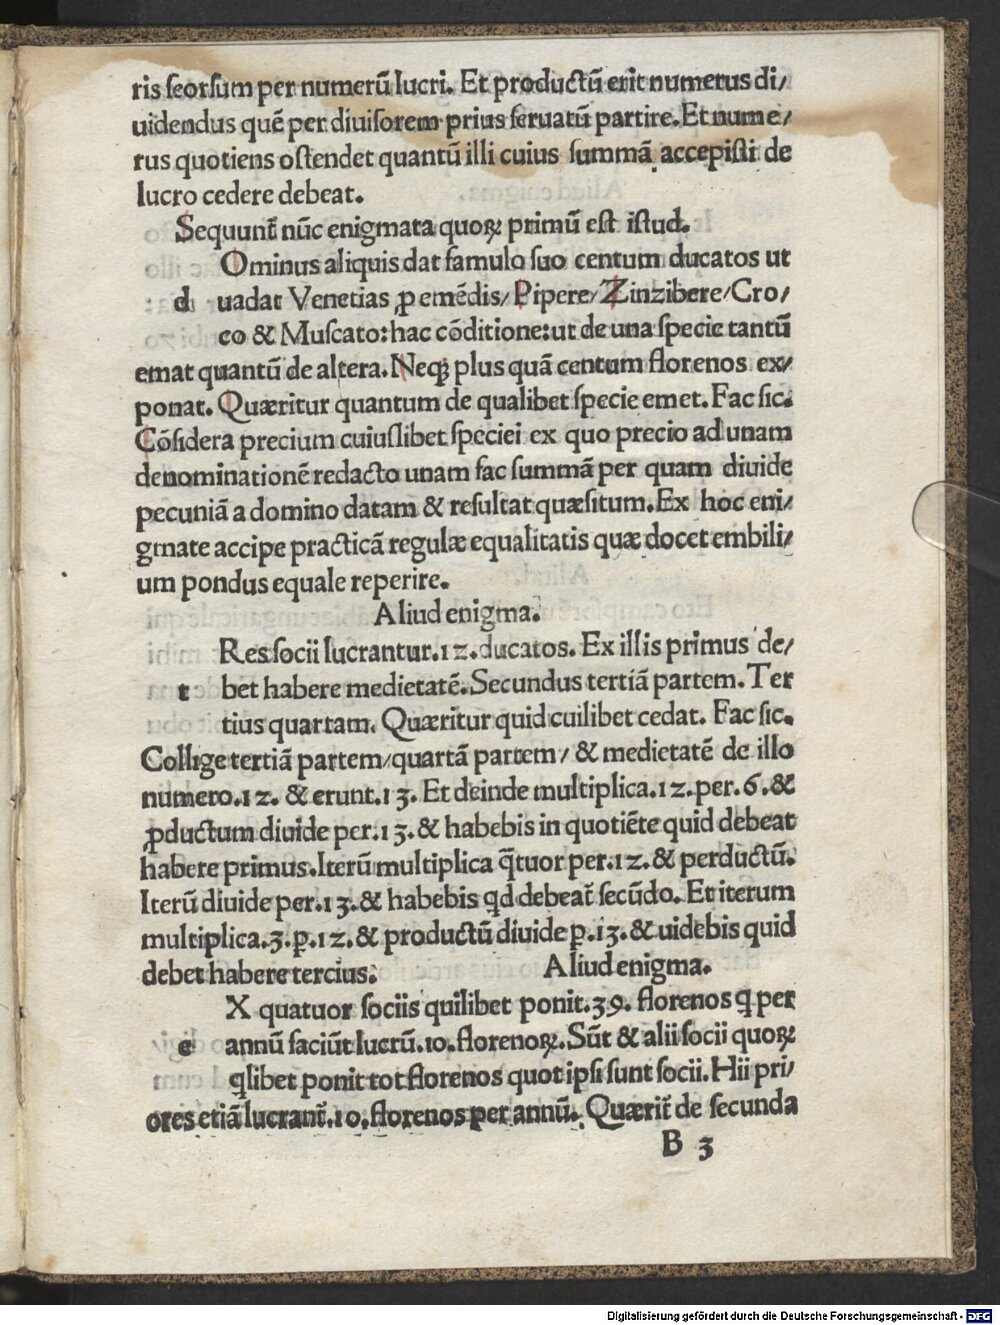 ris seorsum per numerū lucri. Et productū erit numerus di/
uidendus quē per diuisorem prius seruatū partire. Et nume/
rus quotiens ostendet quantū illi cuius summā accepisti de
lucro cedere debeat.
Sequunt̄ nūc enigmata quoꝝ primū est istud.
Ominus aliquis dat famulo suo centum ducatos ut
d uadat Venetias ꝓ emēdis/ Pipere/ Zinzibere/ Cro/
co & Muscato: hac cōditione: ut de una specie tantū
emat quantū de altera. Neqꝫ plus quā centum florenos ex/
ponat. Quæritur quantum de qualibet specie emet. Fac sic.
Cōsidera precium cuiuslibet speciei ex quo precio ad unam
denominationē redacto unam fac summā per quam diuide
pecuniā a domino datam & resultat quæsitum. Ex hoc eni/
gmate accipe practicā regulæ equalitatis quæ docet embili/
um pondus equale reperire.
Aliud enigma.
Res socii lucrantur .12. ducatos. Ex illis primus de/
t bet habere medietatē. Secundus tertiā partem. Ter
tius quartam. Quæritur quid cuilibet cedat. Fac sic.
Collige tertiā partem/ quartā partem/ & medietatē de illo
numero .12. & erunt .13. Et deinde multiplica .12. per .6. &
ꝓductum diuide per .13. & habebis in quotiēte quid debeat
habere primus. Iterū multiplica q̄tuor per .12. & perductū.
Iterū diuide per .13. & habebis qd debeat̄ secūdo. Et iterum
multiplica .3. ꝑ .12. & productū diuide ꝑ .13. & uidebis quid
debet habere tercius. Aliud enigma.
X quatuor sociis quilibet ponit .39. florenos q̨ per
e annū faciūt lucrū .10. florenoꝝ. Sūt & alii socii quoꝝ
q̨libet ponit tot florenos quot ipsi sunt socii. Hii pri/
ores etiā lucrant̄ .10. florenos per annū. Quærit̄ de secunda
B 3
Digitalisierung gefördert durch die Deutsche Forschungsgemeinschaft - DFG